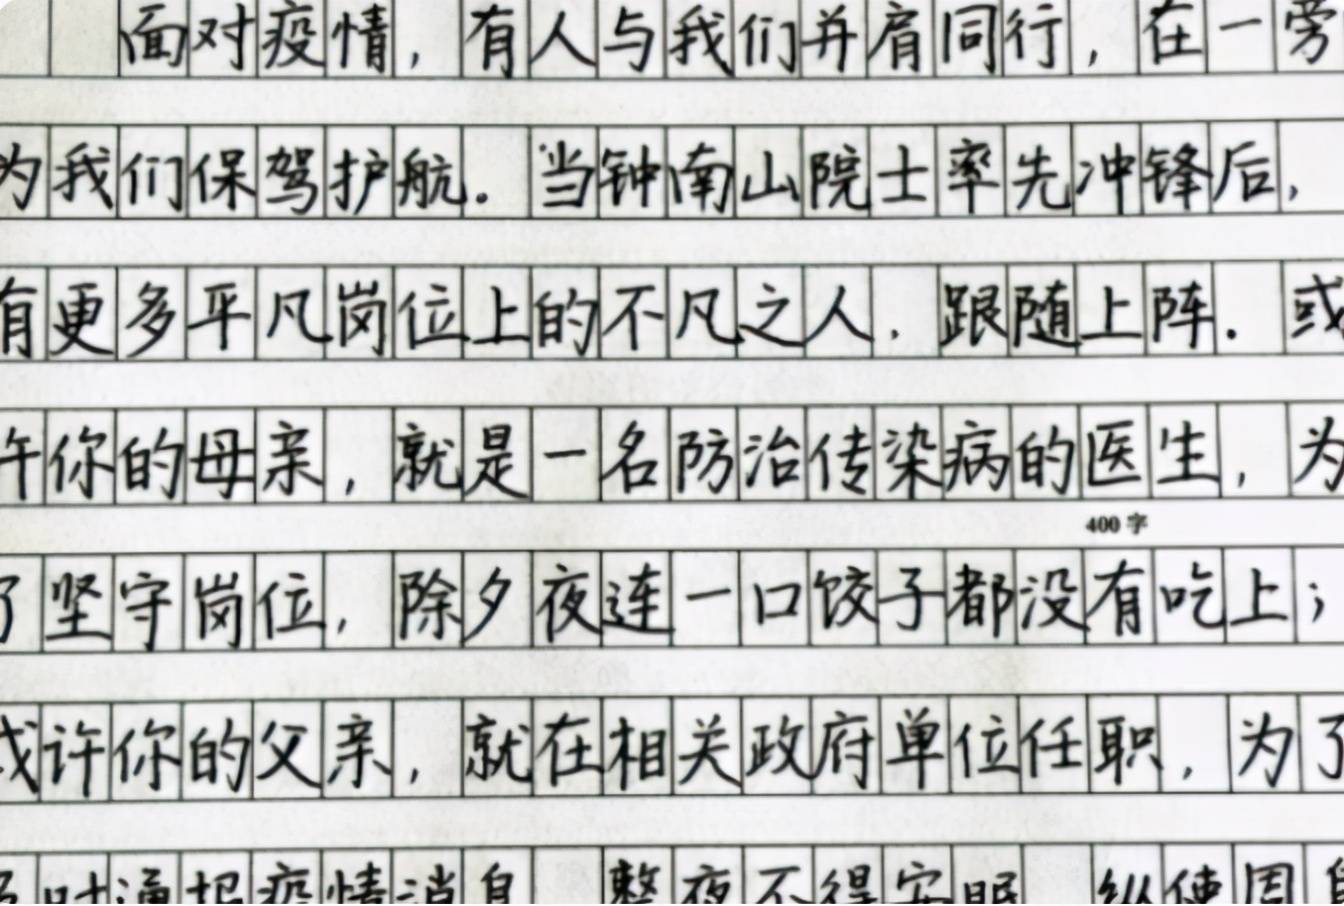 面对疫情，有人与我们并肩同行，在一旁
为我们保驾护航。当钟南山院士率先冲锋后，
有更多平凡岗位上的不凡之人，跟随上阵。或
许你的母亲，就是一名防治传染病的医生，为
400字
了坚守岗位，除夕夜连一口饺子都没有吃上；
或许你的父亲，就在相关政府单位任职，为了
时通报疫情消息，整夜不得安眠，纵使周